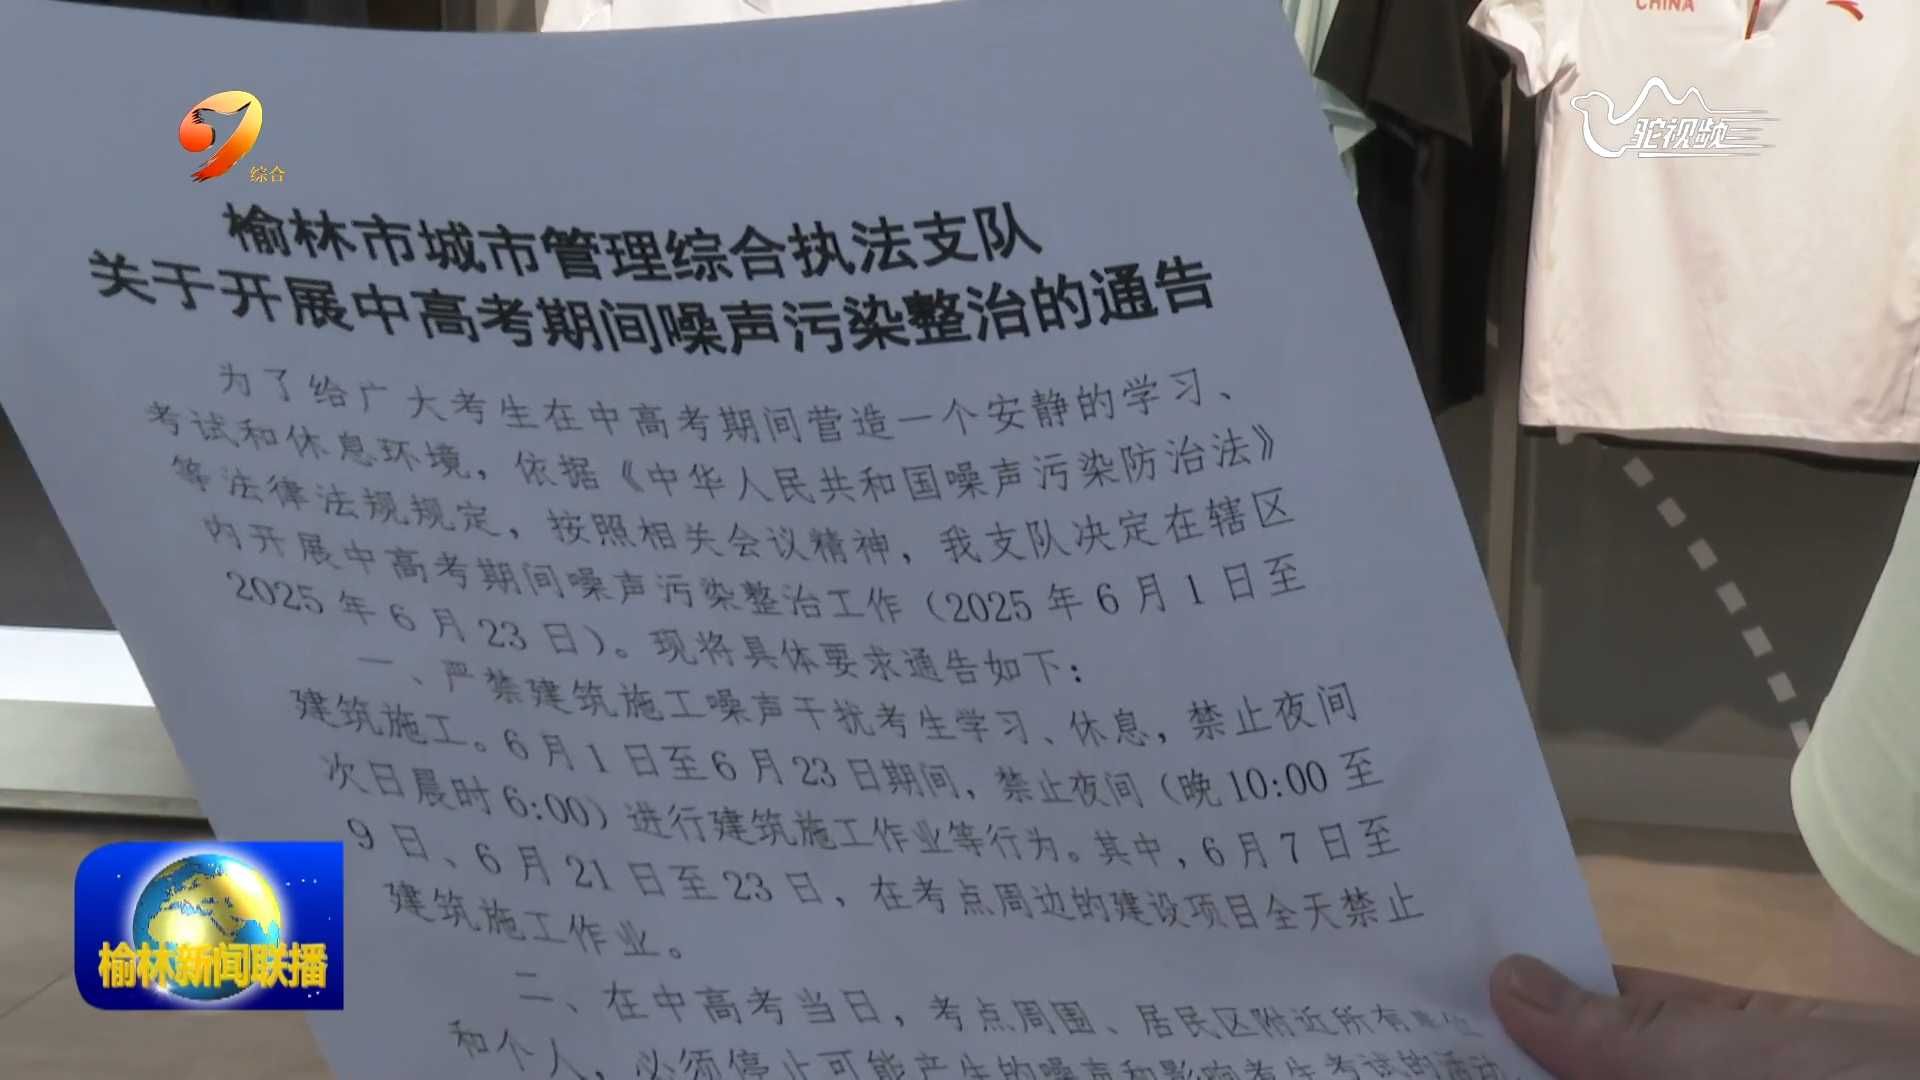 CHINA
综合
驼视频
榆林市城市管理综合执法支队
关于开展中高考期间噪声污染整治的通告
为了给广大考生在中高考期间营造一个安静的学习、
考试和休息环境，依据《中华人民共和国噪声污染防治法》
等法律法规规定，按照相关会议精神，我支队决定在辖区
内开展中高考期间噪声污染整治工作（2025年6月1日至
2025年6月23日）。现将具体要求通告如下：
一、严禁建筑施工噪声干扰考生学习、休息，禁止夜间
建筑施工。6月1日至6月23日期间，禁止夜间（晚10:00至
次日晨时6:00）进行建筑施工作业等行为。其中，6月7日至
9日、6月21日至23日，在考点周边的建设项目全天禁止
建筑施工作业。
二、在中高考当日，考点周围、居民区附近所有单位
和个人，必须停止可能产生的噪声和影响考生考试的活动，
榆林新闻联播